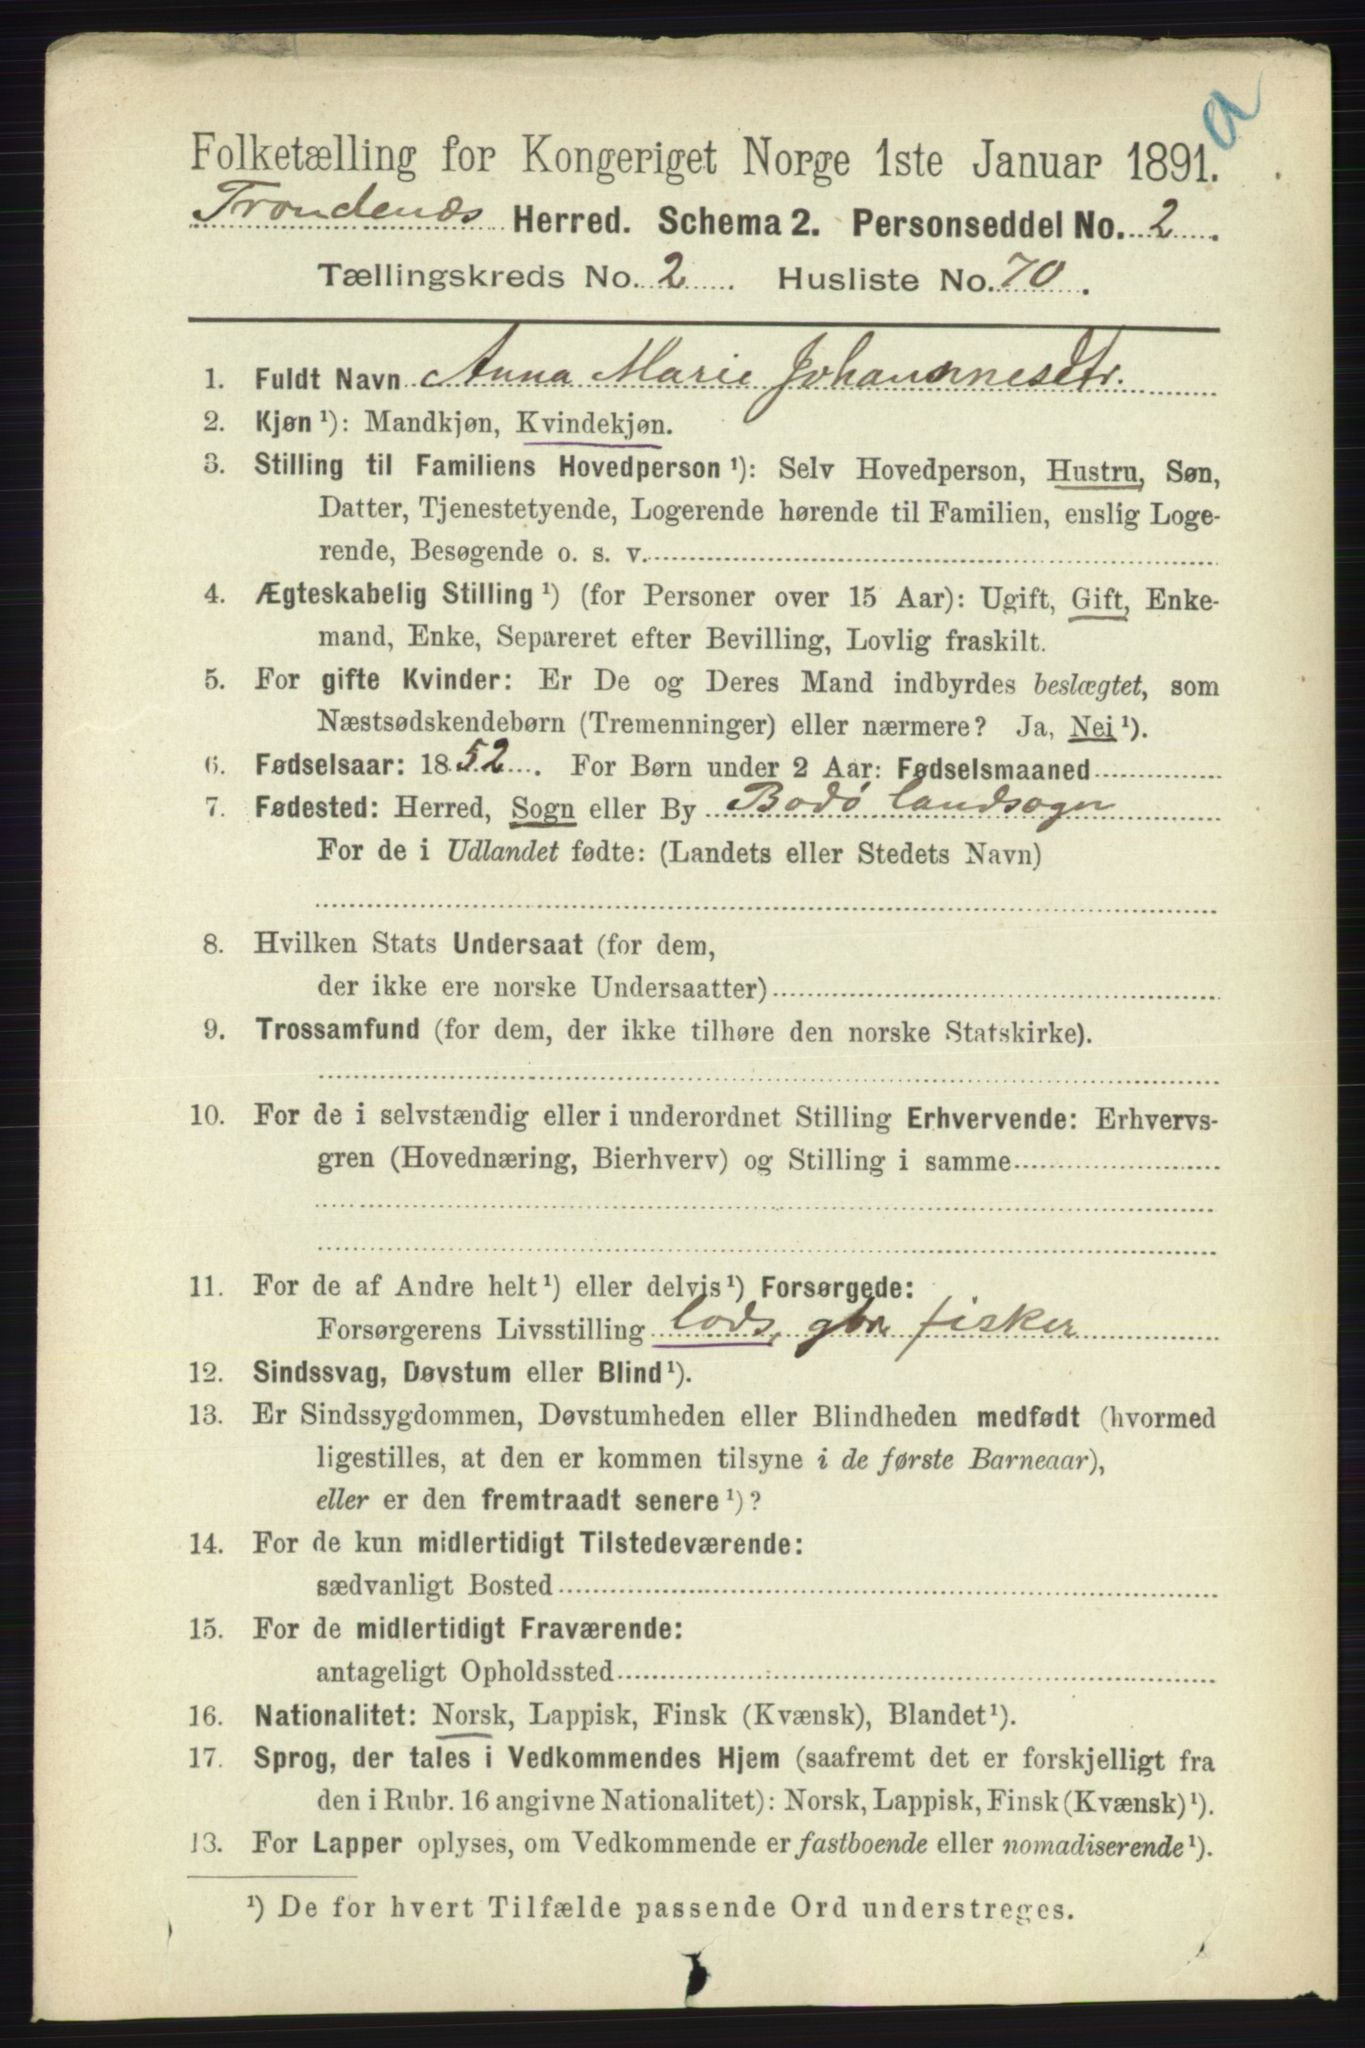 a
Folketælling for Kongeriget Norge 1ste Januar 1891.
Trondenæs Herred. Schema 2. Personseddel No. 2
Tællingskreds No. 2 Husliste No. 70.
1. Fuldt Navn Anna Marie Johannesdtr.
2. Kjøn ¹): Mandkjøn, Kvindekjøn.
3. Stilling til Familiens Hovedperson ¹): Selv Hovedperson, Hustru, Søn,
Datter, Tjenestetyende, Logerende hørende til Familien, enslig Loge-
rende, Besøgende o. s. v.
4. Ægteskabelig Stilling ¹) (for Personer over 15 Aar): Ugift, Gift, Enke-
mand, Enke, Separeret efter Bevilling, Lovlig fraskilt.
5. For gifte Kvinder: Er De og Deres Mand indbyrdes beslægtet, som
Næstsødskendebørn (Tremenninger) eller nærmere? Ja, Nei ¹).
6. Fødselsaar: 1852. For Børn under 2 Aar: Fødselsmaaned
7. Fødested: Herred, Sogn eller By Bodø landsogn
For de i Udlandet fødte: (Landets eller Stedets Navn)
8. Hvilken Stats Undersaat (for dem,
der ikke ere norske Undersaatter)
9. Trossamfund (for dem, der ikke tilhøre den norske Statskirke).
10. For de i selvstændig eller i underordnet Stilling Erhvervende: Erhvervs-
gren (Hovednæring, Bierhverv) og Stilling i samme
11. For de af Andre helt ¹) eller delvis ¹) Forsørgede:
Forsørgerens Livsstilling lods, gbr fisker
12. Sindssvag, Døvstum eller Blind ¹).
13. Er Sindssygdommen, Døvstumheden eller Blindheden medfødt (hvormed
ligestilles, at den er kommen tilsyne i de første Barneaar),
eller er den fremtraadt senere ¹)?
14. For de kun midlertidigt Tilstedeværende:
sædvanligt Bosted
15. For de midlertidigt Fraværende:
antageligt Opholdssted
16. Nationalitet: Norsk, Lappisk, Finsk (Kvænsk), Blandet ¹).
17. Sprog, der tales i Vedkommendes Hjem (saafremt det er forskjelligt fra
den i Rubr. 16 angivne Nationalitet): Norsk, Lappisk, Finsk (Kvænsk) ¹).
13. For Lapper oplyses, om Vedkommende er fastboende eller nomadiserende ¹).
¹) De for hvert Tilfælde passende Ord understreges.